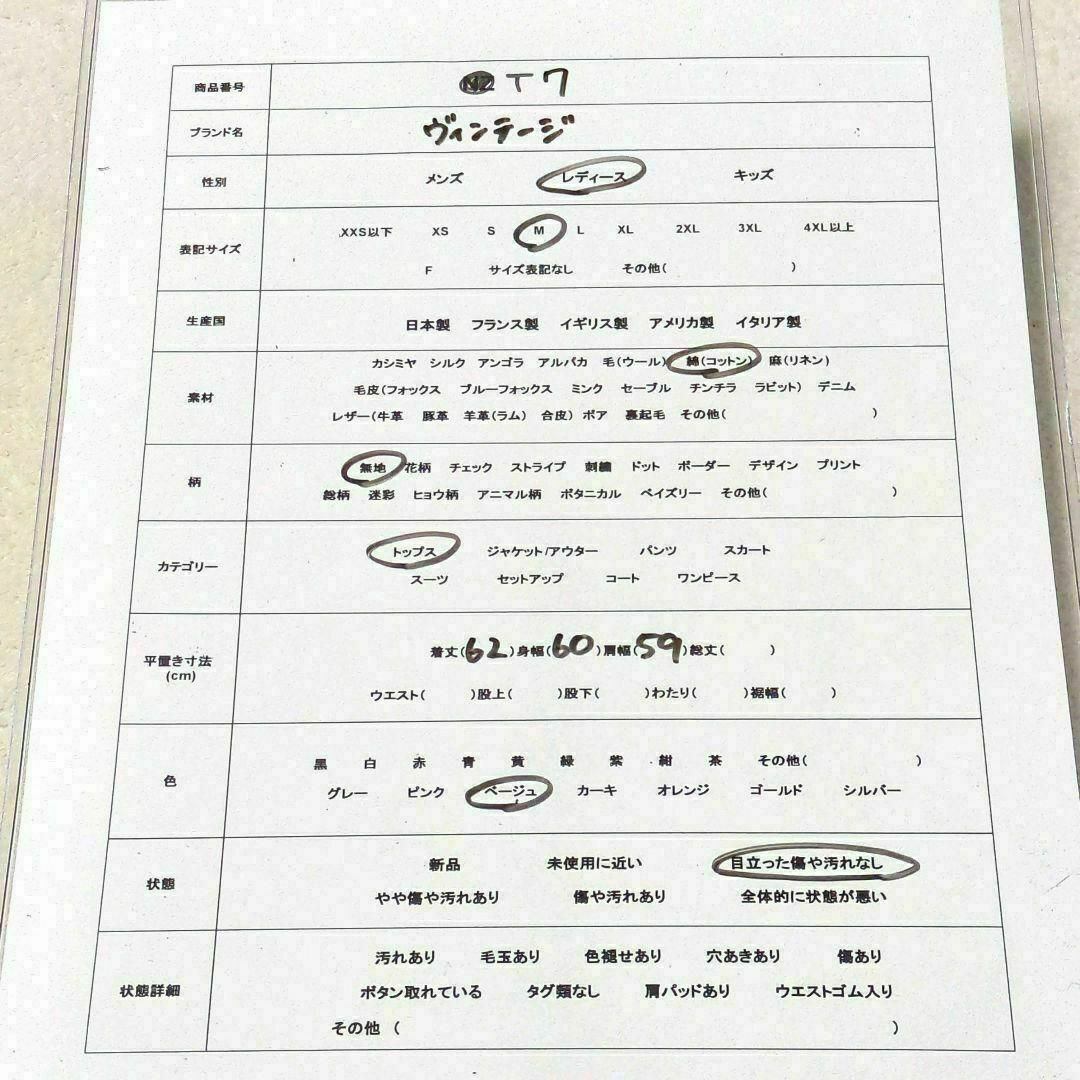 商品番号 N2 T7
ブランド名 ヴィンテージ
性別 メンズ レディース キッズ
XXS以下 XS S M L XL 2XL 3XL 4XL以上
表記サイズ
F サイズ表記なし その他( )
生産国 日本製 フランス製 イギリス製 アメリカ製 イタリア製
カシミヤ シルク アンゴラ アルパカ 毛(ウール) 綿(コットン) 麻(リネン)
素材 毛皮(フォックス ブルーフォックス ミンク セーブル チンチラ ラビット) デニム
レザー(牛革 豚革 羊革(ラム) 合皮) ボア 裏起毛 その他( )
無地 花柄 チェック ストライプ 刺繍 ドット ボーダー デザイン プリント
柄
総柄 迷彩 ヒョウ柄 アニマル柄 ボタニカル ペイズリー その他( )
トップス ジャケット/アウター パンツ スカート
カテゴリー
スーツ セットアップ コート ワンピース
着丈(62)身幅(60)肩幅(59)総丈( )
平置き寸法
(cm)
ウエスト( )股上( )股下( )わたり( )裾幅( )
黒 白 赤 青 黄 緑 紫 紺 茶 その他( )
色
グレー ピンク ベージュ カーキ オレンジ ゴールド シルバー
新品 未使用に近い 目立った傷や汚れなし
状態
やや傷や汚れあり 傷や汚れあり 全体的に状態が悪い
汚れあり 毛玉あり 色褪せあり 穴あきあり 傷あり
状態詳細 ボタン取れている タグ類なし 肩パッドあり ウエストゴム入り
その他 ( )